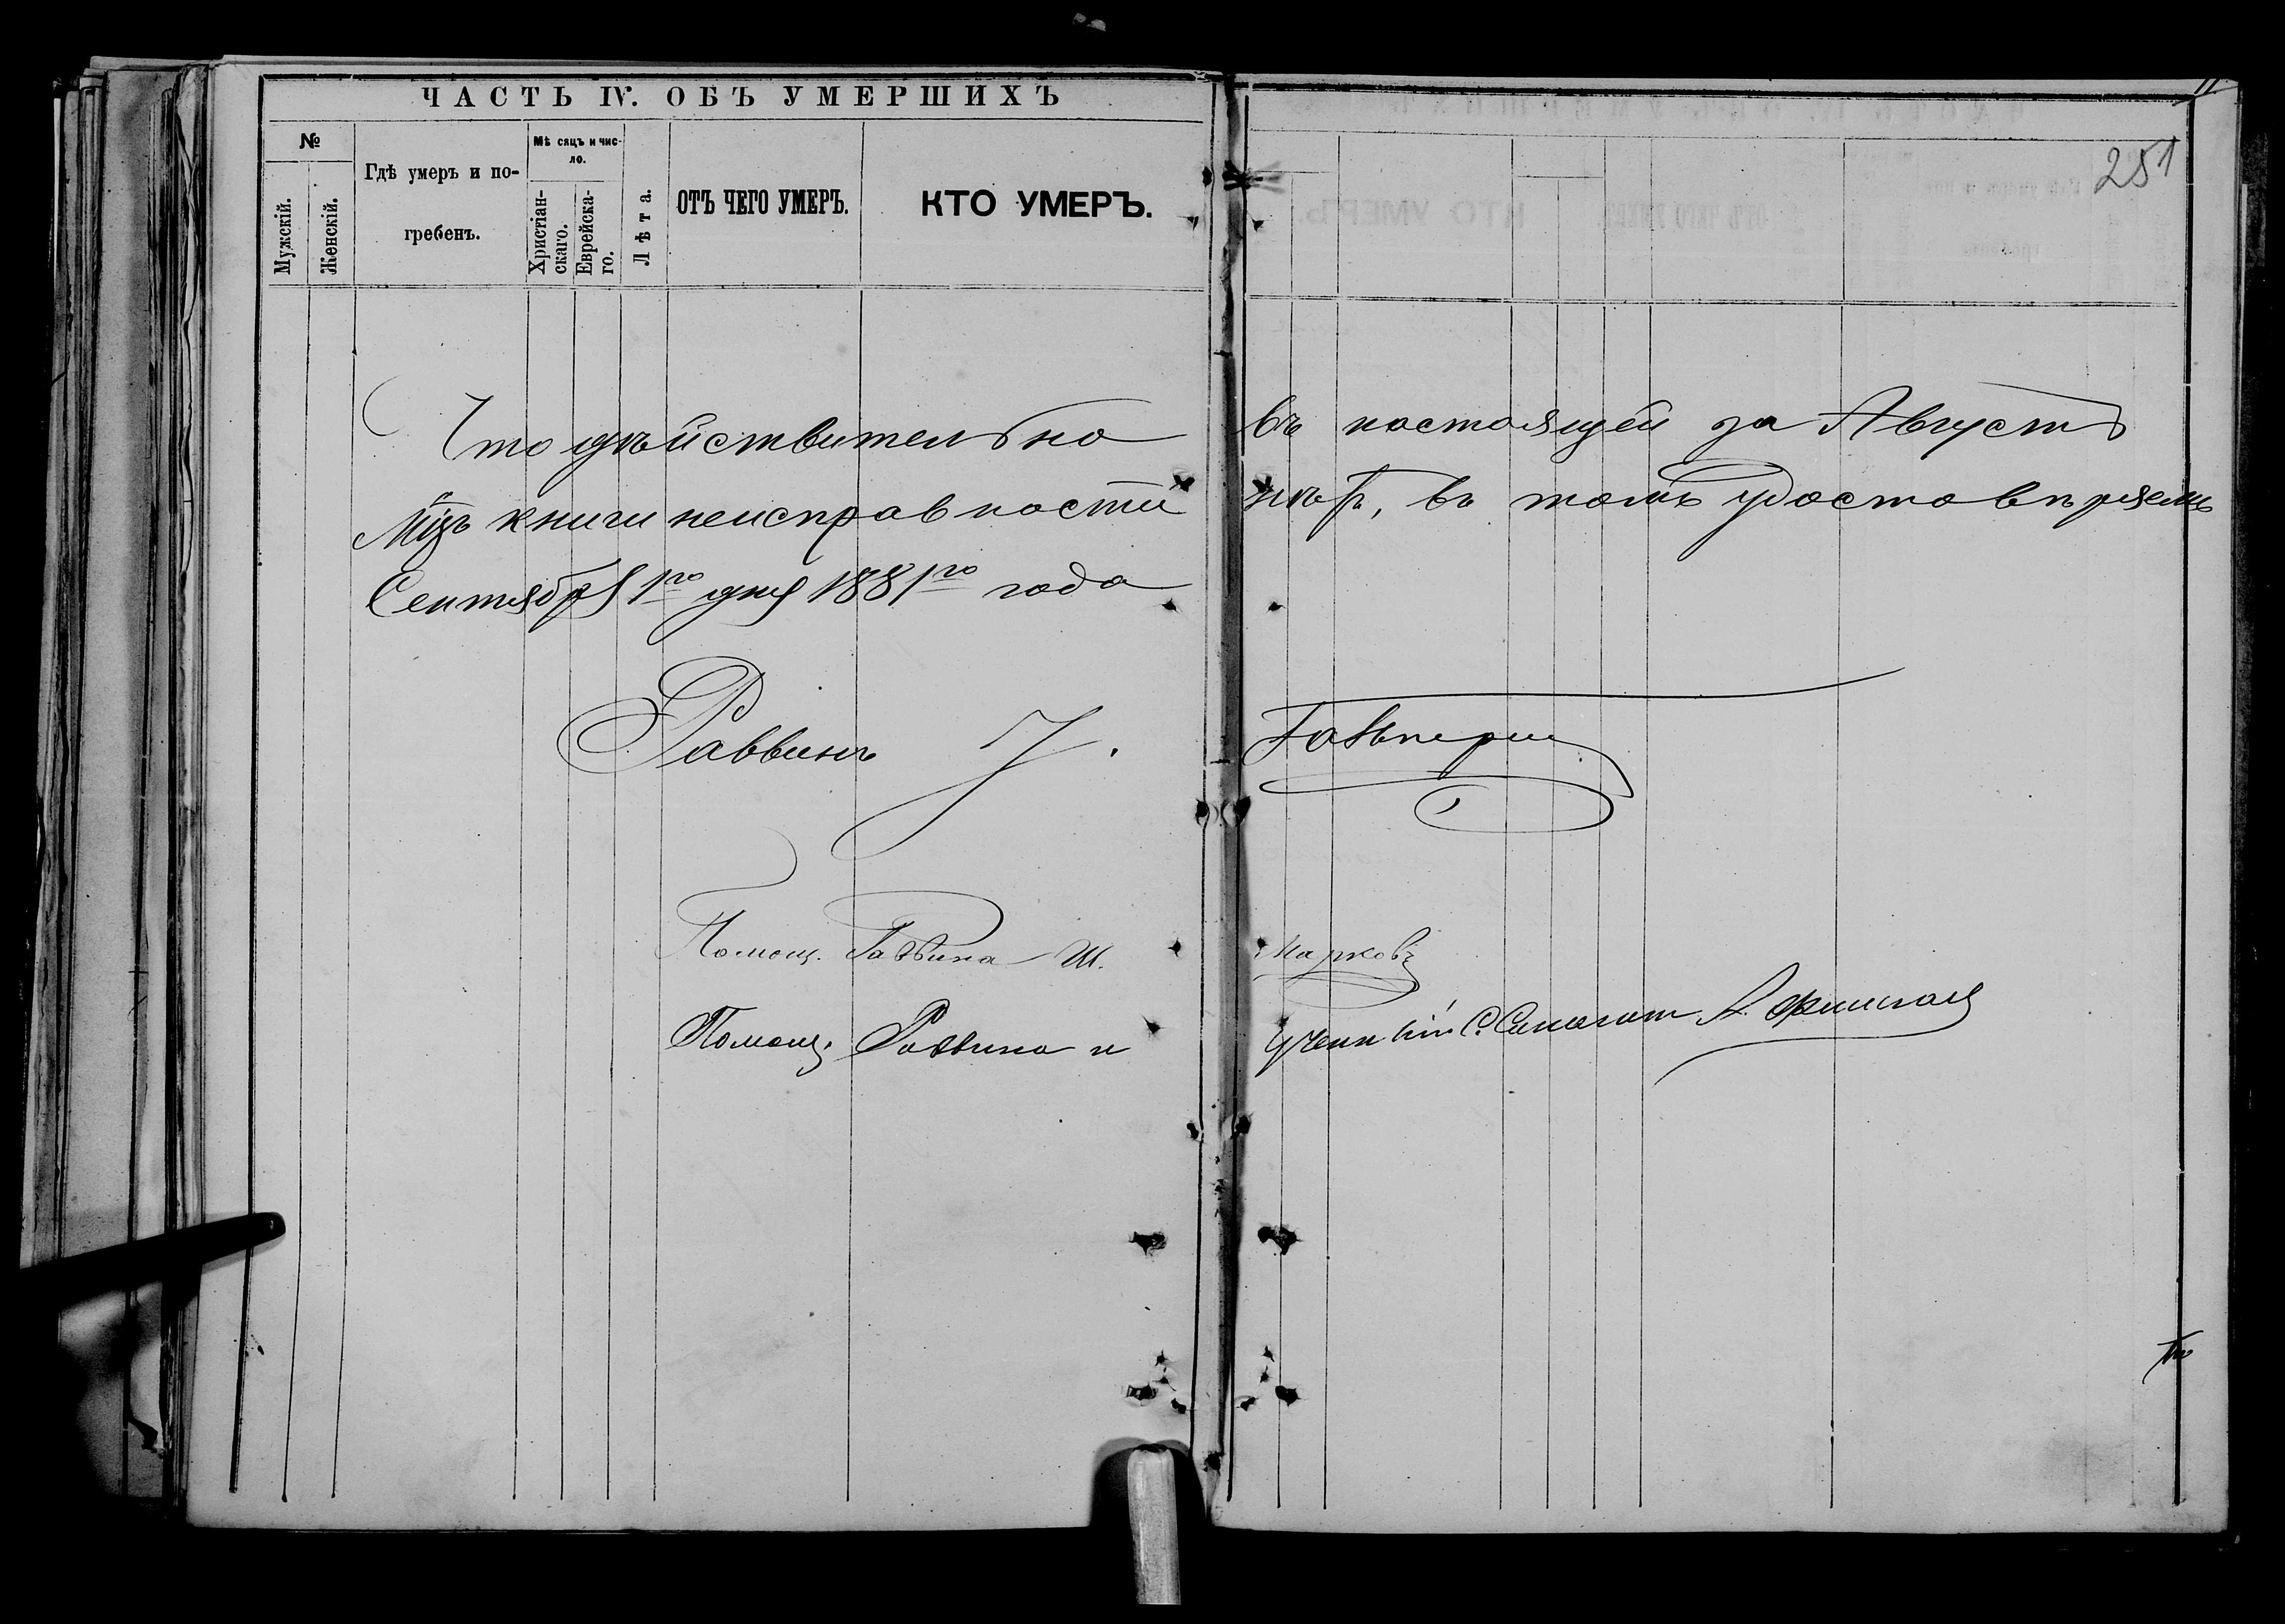 ЧАСТЬ IV. ОБЪ УМЕРШИХЪ
№
Мужскій.
Женскій.
Гдѣ умеръ и по-
гребенъ.
Мѣсяцъ и чис-
ло.
Христіан-
скаго.
Еврейска-
го.
Лѣта.
ОТЪ ЧЕГО УМЕРЪ.
КТО УМЕРЪ.
251
Что дѣйствительно въ настоящей за Августъ
Мцъ книги неисправности нѣтъ, въ томъ удостовѣряемъ
Сентября 1го дня 1881го года
Раввинъ
Помощ. Раввина Ш. Марковъ
Помощ. Раввина и